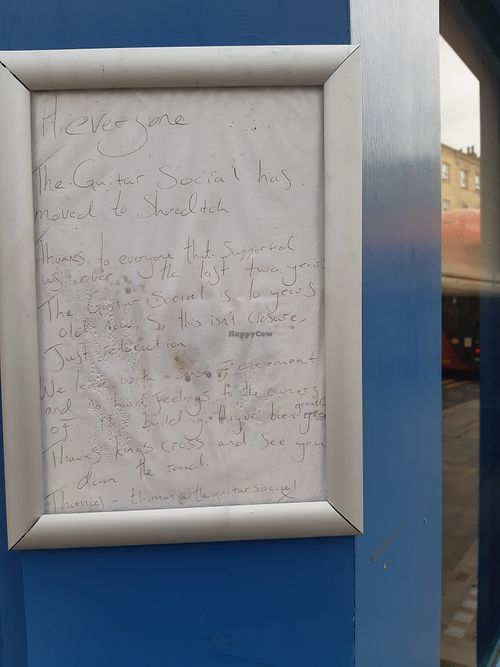 Hi everyone
The Guitar Social has
moved to Shoreditch
Thanks to everyone that supported
us over the last two years
The Guitar Social is 10 years
old now, so this isn't closure,
Just relocation.
We leave with a sense of excitement
and no hard feelings to the owners
of this building, they've been great
Thanks kings cross and see you
down the road.
Thomas - thomas@theguitarsocial
HappyCow